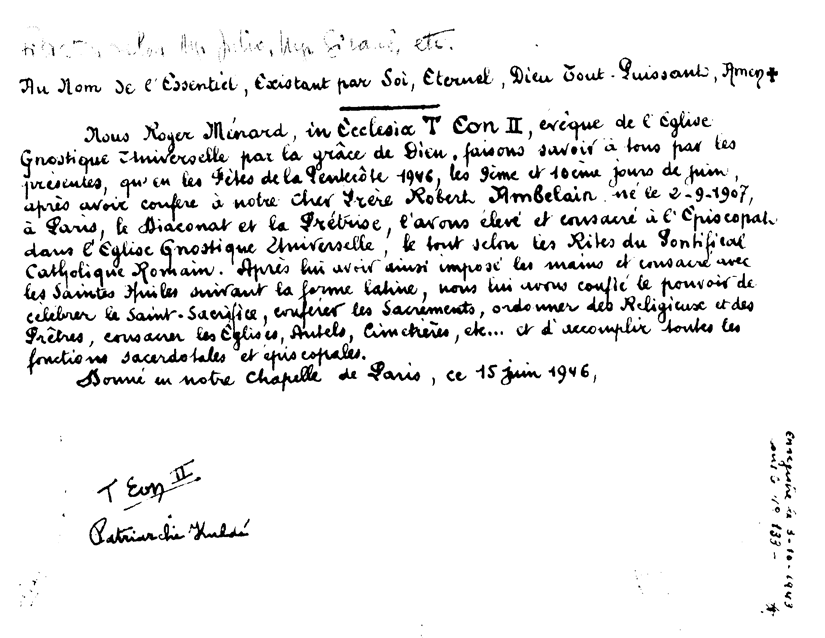 Mgr Julio, Mgr Giraud, etc.
Au Nom de l'Essentiel, Existant par Soi, Eternel, Dieu Tout-Puissant, Amen ✝
Nous Roger Ménard, in Ecclesia T Eon II, evêque de l'Eglise
Gnostique Universelle par la grâce de Dieu, faisons savoir à tous par les
présentes, qu'en les Fêtes de la Pentecôte 1946, les 9ème et 10ème jours de juin,
après avoir conféré à notre Cher Frère Robert Ambelain né le 2-9-1907,
à Paris, le Diaconat et la Prêtrise, l'avons élevé et consacré à l'Episcopat
dans l'Eglise Gnostique Universelle, le tout selon les Rites du Pontifical
Catholique Romain. Après lui avoir ainsi imposé les mains et consacré avec
les Saintes Huiles suivant la forme latine, nous lui avons confié le pouvoir de
célébrer le Saint-Sacrifice, conférer les Sacrements, ordonner des Religieux et des
Prêtres, consacrer les Eglises, Autels, Cimetières, etc... et d'accomplir toutes les
fonctions sacerdotales et épiscopales.
Donné en notre Chapelle de Paris, ce 15 juin 1946,
T Eon II
Patriarche Kuldé